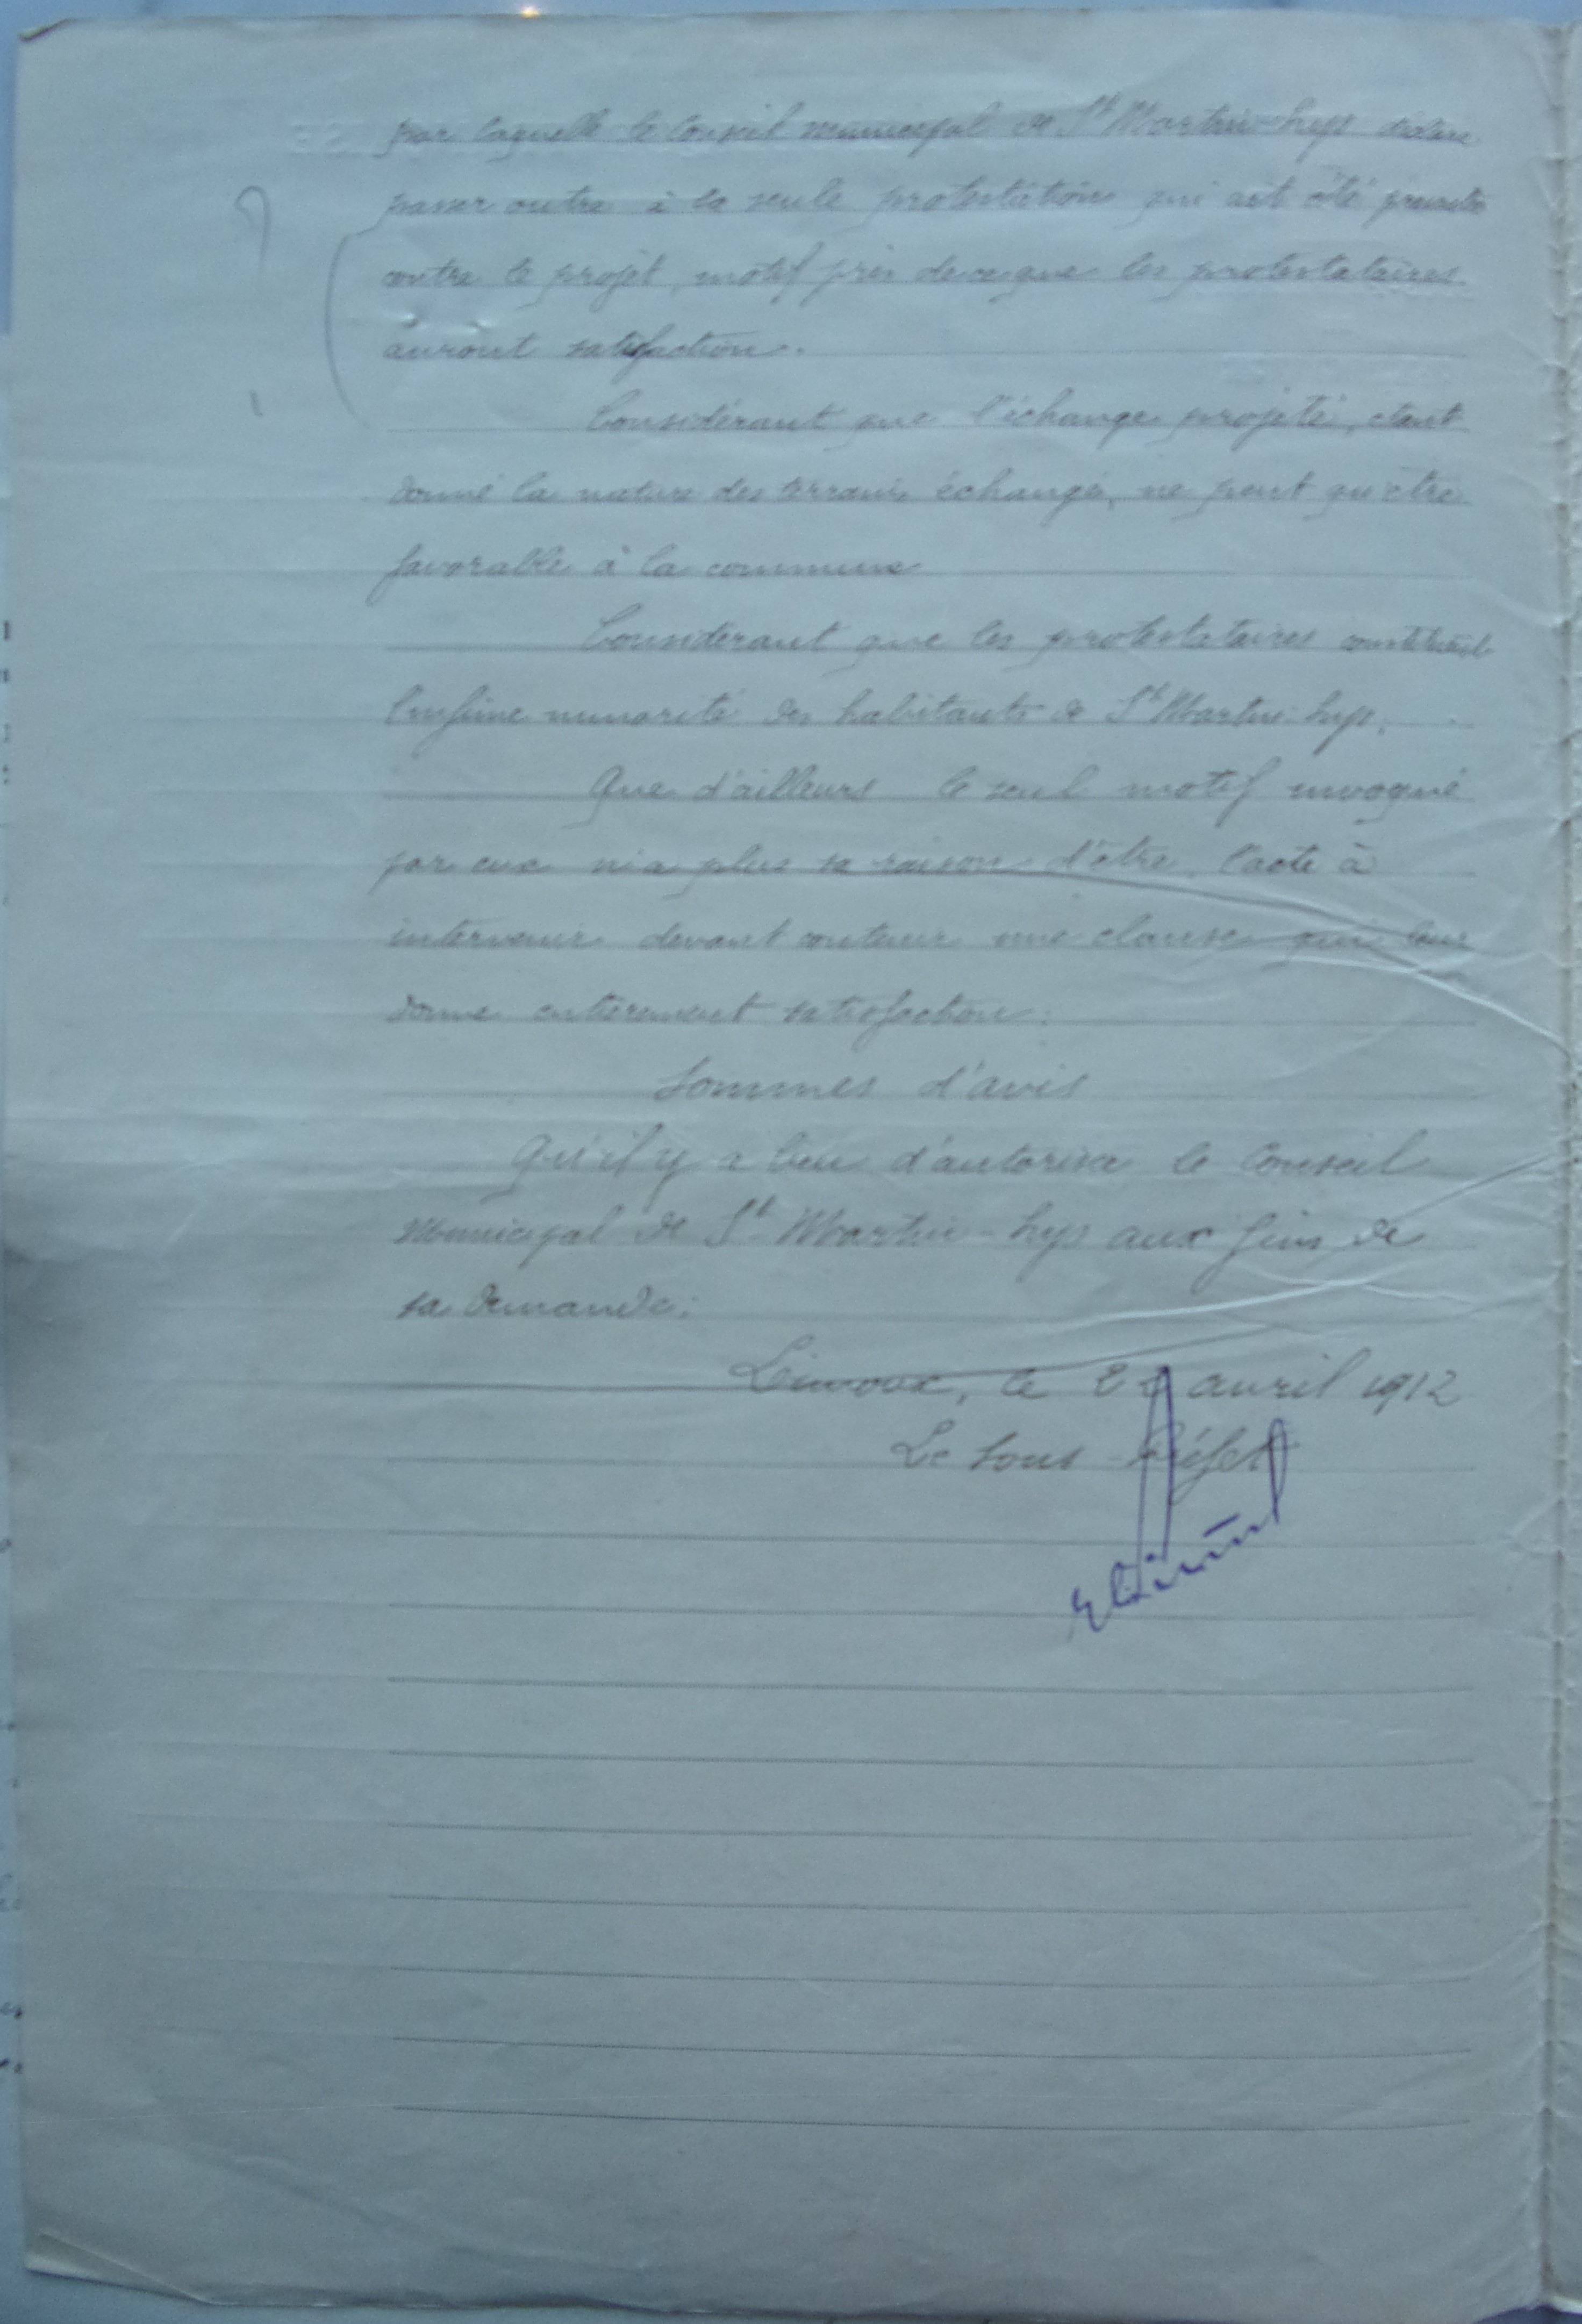 par laquelle le Conseil municipal de St Martin-Lys déclare
passer outre à la seule protestation qui ait été
contre le projet, motif pris de ce que les protestataires
auront satisfaction.
Considérant que l'échange projeté, étant
donné la nature des terrains échangés, ne peut qu'être
favorable à la commune
Considérant que les protestataires constituent
l'infime minorité des habitants de St Martin-Lys.
Que d'ailleurs le seul motif invoqué
par eux n'a plus sa raison d'être, l'acte à
intervenir devant contenir une clause qui leur
donne entièrement satisfaction:
Sommes d'avis
Qu'il y a lieu d'autoriser le Conseil
Municipal de St Martin-Lys aux fins de
sa demande:
Limoux, le avril 1912
Le Sous-Préfet